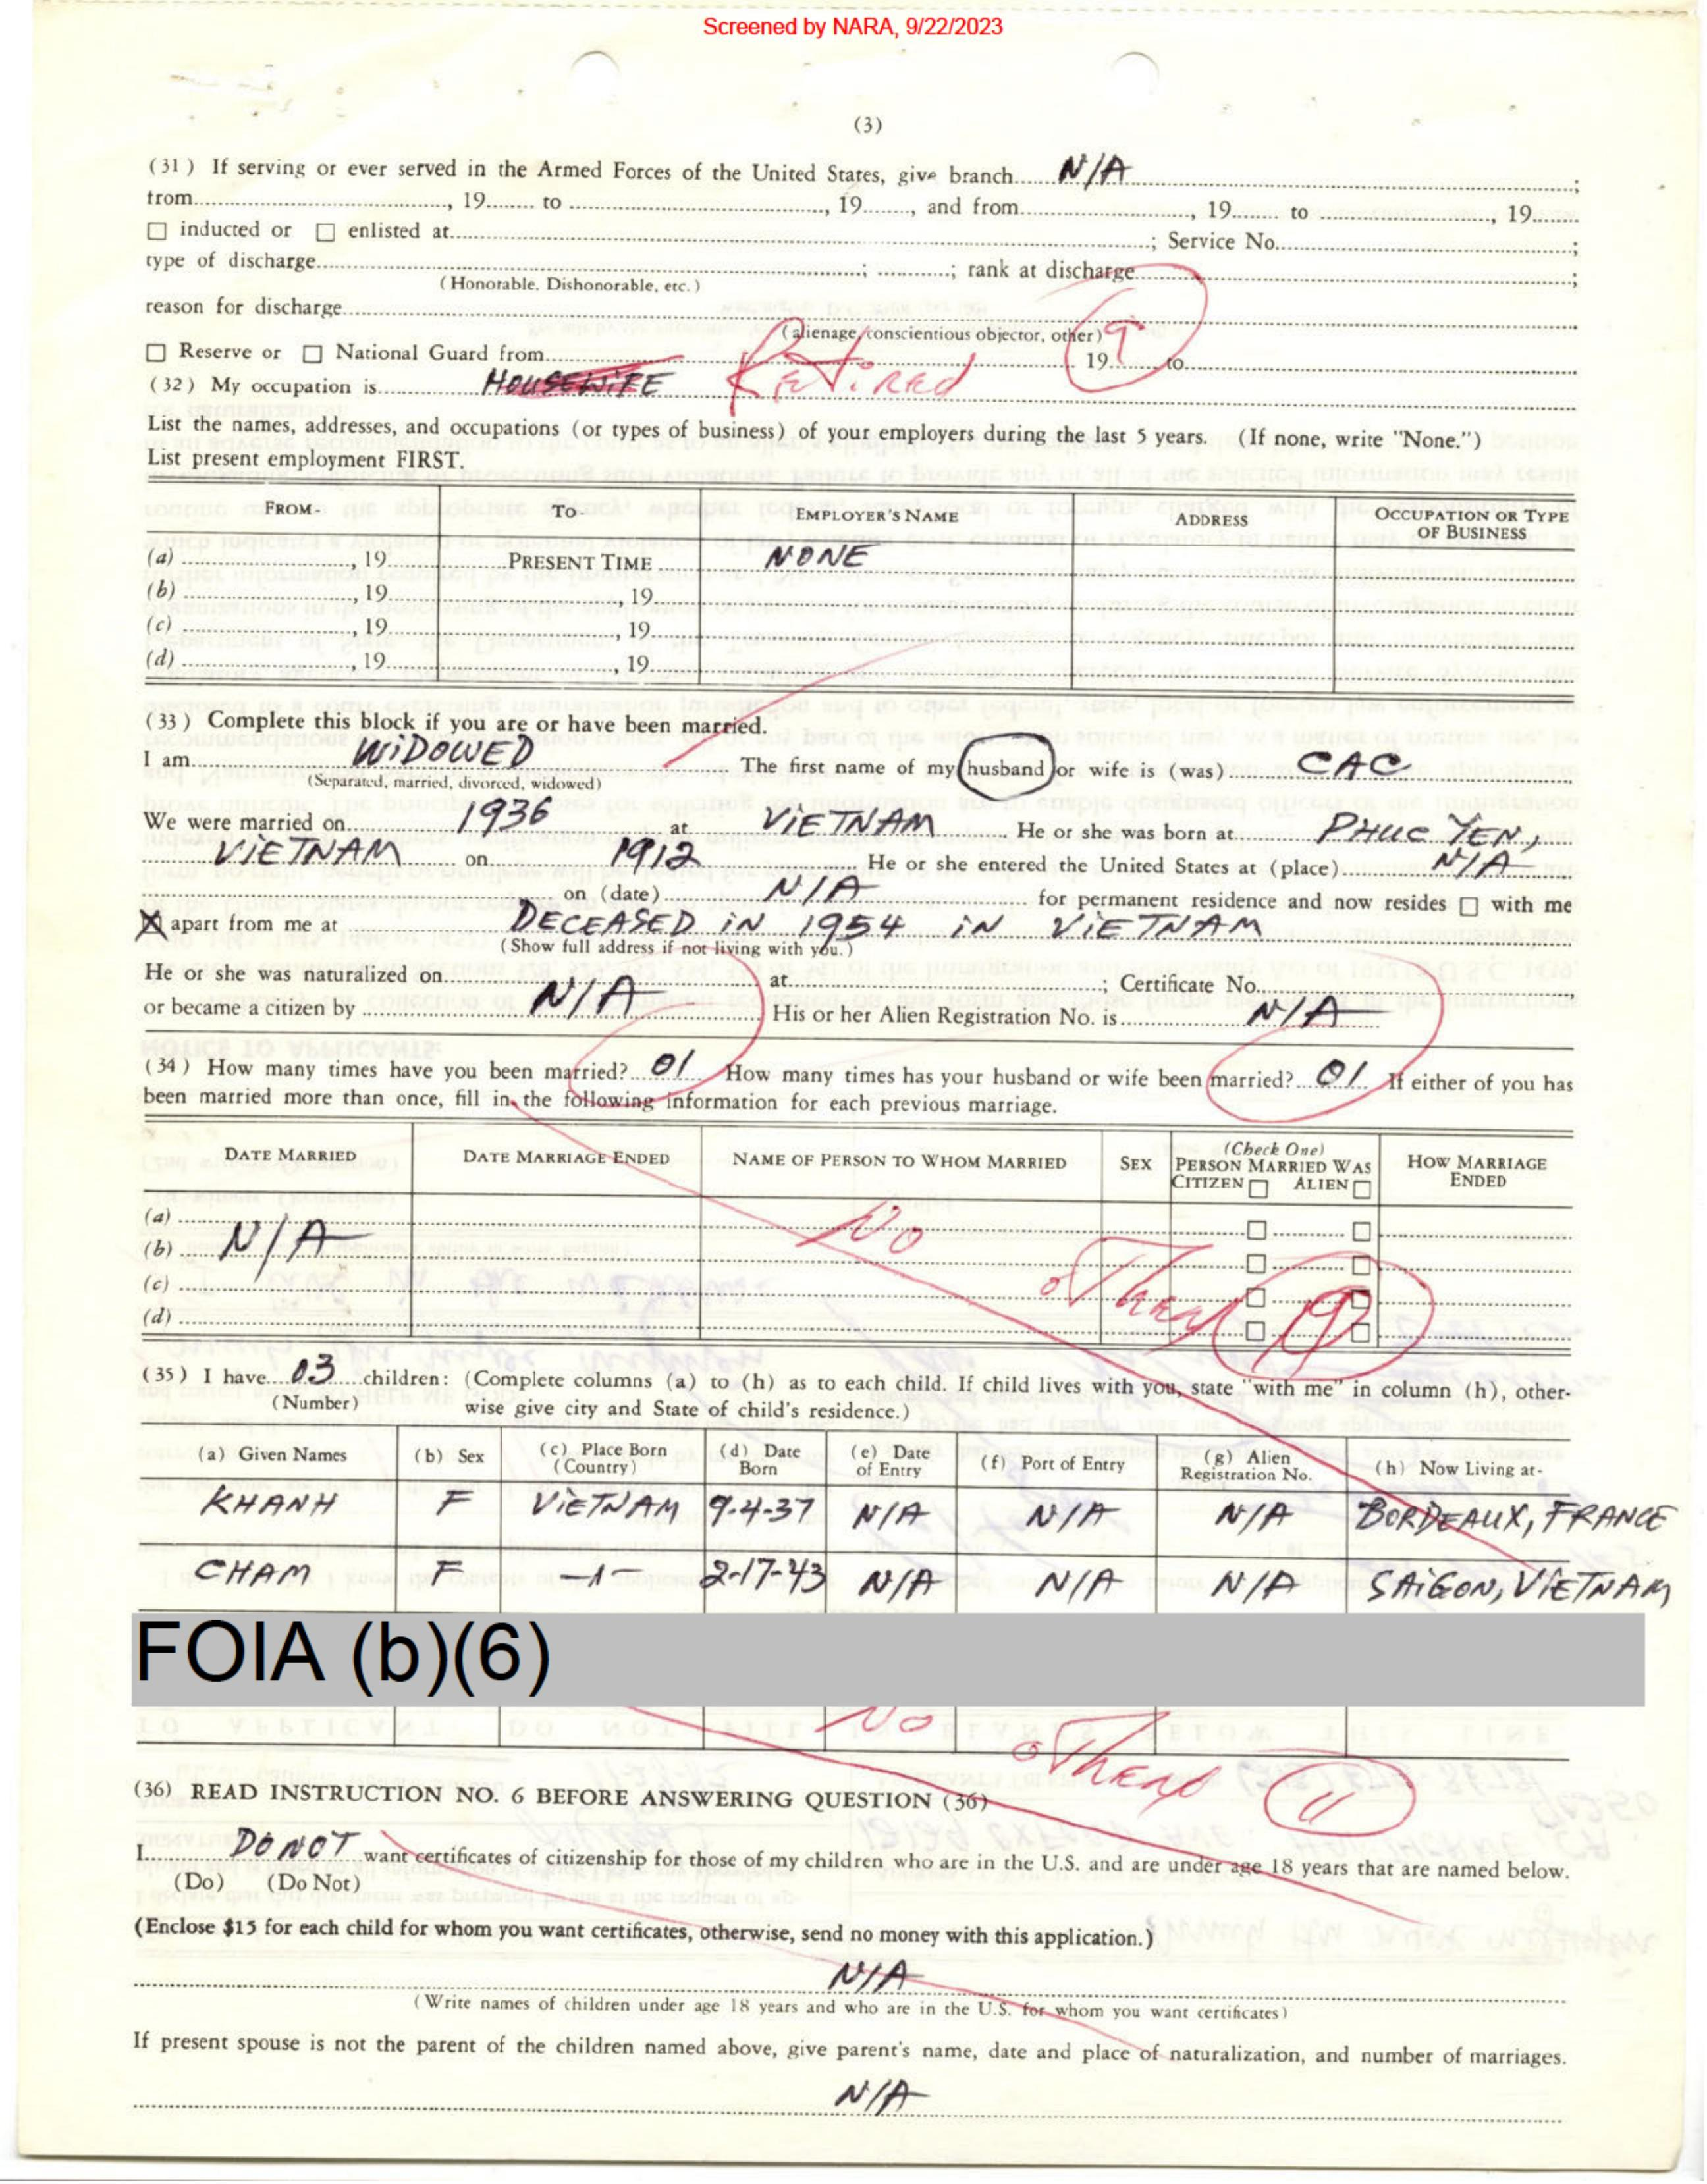 Screened by NARA, 9/22/2023
(3)
(31) If serving or ever served in the Armed Forces of the United States, give branch N/A ;
from , 19 to , 19 , and from , 19 to , 19
☐ inducted or ☐ enlisted at ; Service No. ;
type of discharge ; ; rank at discharge ;
(Honorable, Dishonorable, etc.)
reason for discharge
(alienage, conscientious objector, other) 9
☐ Reserve or ☐ National Guard from 19 to
(32) My occupation is HOUSEWIFE Retired
List the names, addresses, and occupations (or types of business) of your employers during the last 5 years. (If none, write "None.")
List present employment FIRST.
FROM- TO- EMPLOYER'S NAME ADDRESS OCCUPATION OR TYPE OF BUSINESS
(a) , 19 PRESENT TIME NONE
(b) , 19 , 19
(c) , 19 , 19
(d) , 19 , 19
(33) Complete this block if you are or have been married.
I am WIDOWED The first name of my husband or wife is (was) CAC
(Separated, married, divorced, widowed)
We were married on 1936 at VIETNAM He or she was born at PHUC YEN,
VIETNAM on 1912 He or she entered the United States at (place) N/A
on (date) N/A for permanent residence and now resides ☐ with me
☒ apart from me at DECEASED IN 1954 IN VIETNAM
(Show full address if not living with you.)
He or she was naturalized on at ; Certificate No. ,
or became a citizen by N/A His or her Alien Registration No. is N/A
(34) How many times have you been married? 01 How many times has your husband or wife been married? 01 If either of you has
been married more than once, fill in the following information for each previous marriage.
DATE MARRIED DATE MARRIAGE ENDED NAME OF PERSON TO WHOM MARRIED SEX (Check One) PERSON MARRIED WAS CITIZEN ☐ ALIEN ☐ HOW MARRIAGE ENDED
(a) ☐ ☐
(b) N/A No ☐ ☐
(c) ☐ ☐
(d) ☐ ☐
(35) I have 03 children: (Complete columns (a) to (h) as to each child. If child lives with you, state "with me" in column (h), other-
(Number) wise give city and State of child's residence.)
(a) Given Names (b) Sex (c) Place Born (Country) (d) Date Born (e) Date of Entry (f) Port of Entry (g) Alien Registration No. (h) Now Living at-
KHANH F VIETNAM 9-4-37 N/A N/A N/A BORDEAUX, FRANCE
CHAM F -1- 2-17-43 N/A N/A N/A SAIGON, VIETNAM
FOIA (b)(6)
No
11
(36) READ INSTRUCTION NO. 6 BEFORE ANSWERING QUESTION (36)
I DO NOT want certificates of citizenship for those of my children who are in the U.S. and are under age 18 years that are named below.
(Do) (Do Not)
(Enclose $15 for each child for whom you want certificates, otherwise, send no money with this application.)
N/A
(Write names of children under age 18 years and who are in the U.S. for whom you want certificates)
If present spouse is not the parent of the children named above, give parent's name, date and place of naturalization, and number of marriages.
N/A